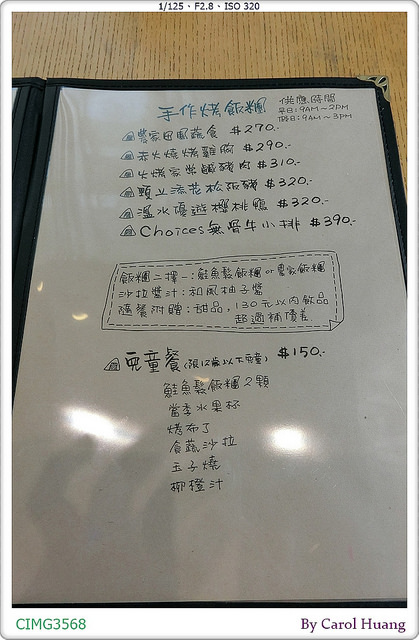 1/125 · F2.8 · ISO 320
手作烤飯糰
供應時間
平日:9AM~2PM
假日:9AM~3PM
農家田園蔬食 $270.-
赤火燒烤雞胸 $290.-
火烤家常鹹豬肉 $310.-
$320.-
$320.-
Choices無骨牛小排 $390.-
飯糰二擇一:鮭魚鬆飯糰or農家飯糰
沙拉醬汁:和風柚子醬
隨餐附贈:甜品,130元以內飲品
超過補價差
兒童餐(限12歲以下兒童) $150.-
鮭魚鬆飯糰2顆
當季水果杯
烤布丁
食蔬沙拉
玉子燒
柳橙汁
CIMG3568
By Carol Huang